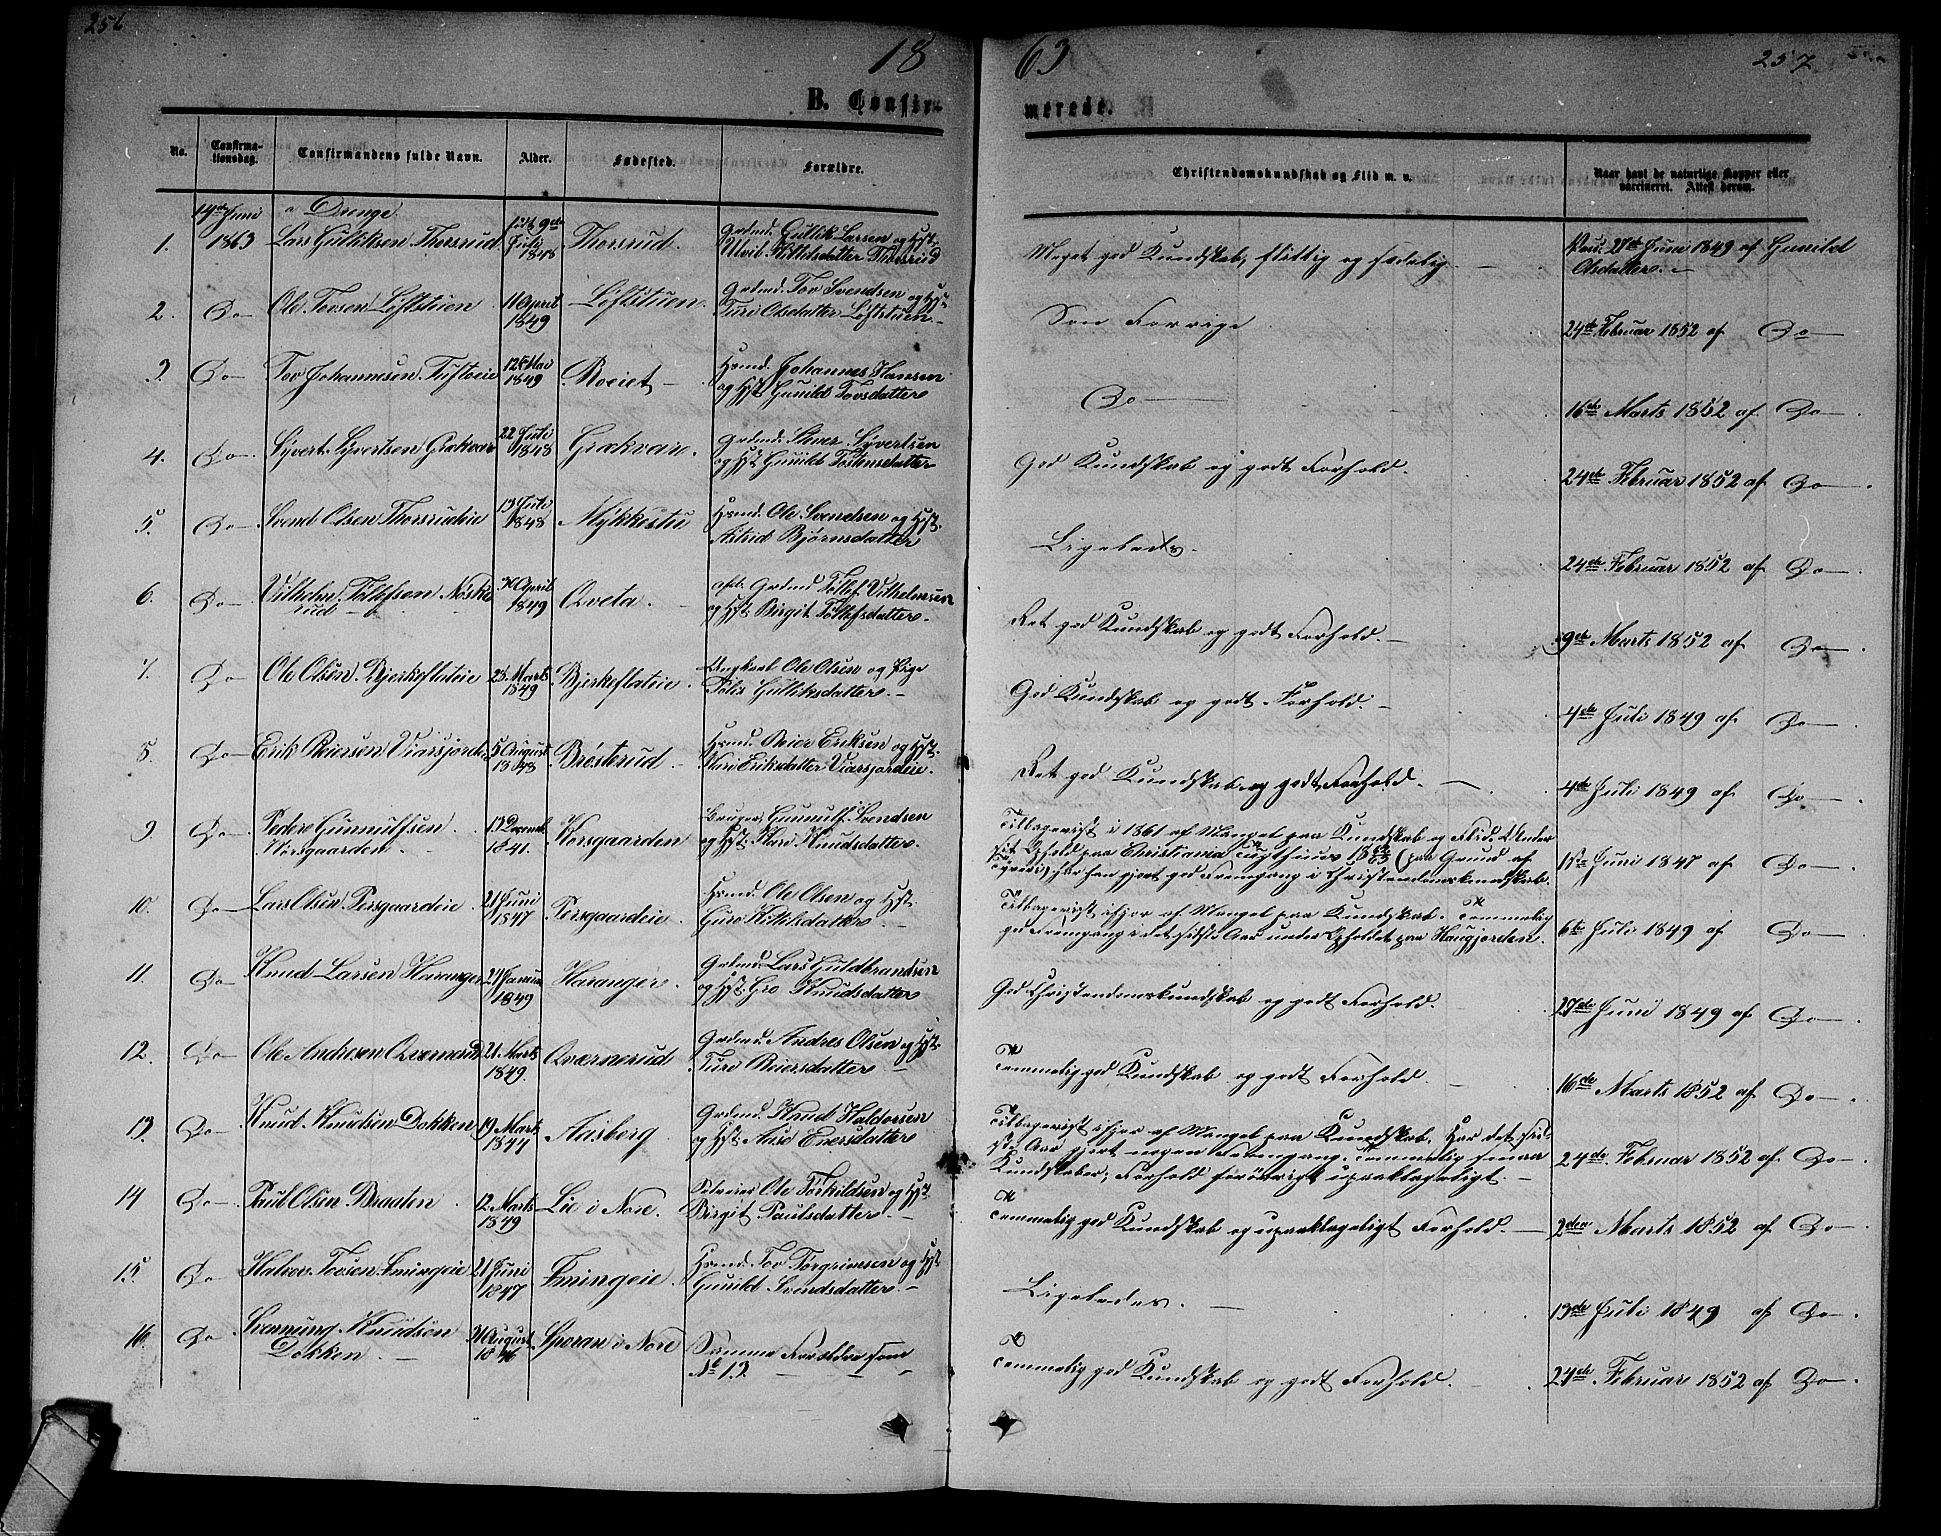 256
18
63
257
B. Confir-
merede.
No.
Confirma-
tionsdag.
Confirmandens fulde Navn.
Alder.
Fødested.
Forældre.
Christendomskundskab og Flid m. v.
Naar havt de naturlige Kopper eller
vaccineret. Attest derom.
14de Juni
1863
a Drenge
1. Lars Gulliksen Thorsrud
født 9de
Juli
1848
Thorsrud.
Grdmd. Gullik Larsen og Hst.
Kittilsdatter Thorsrud
Meget god Kundskab, flittig og sædelig
Vacc. 27de Juni 1849 af Gunild
Olsdatter.
2. Do Ole Tovsen Löftstuen
11 April
1849
Löftstuen.
Grdmd. Tov Svendsen og Hst.
Turi Olsdatter Löftstuen
Som Forrige
24de Februar 1852 af Do
3. Do Tov Johannesen Tuftveie
12te Mai
1849
Roeiet
Hsmd. Johannes Hansen
og Hst. Gunild Tovsdatter
Do
16de Marts 1852 af Do
4. Do Syvert Syvertsen Grækvam
22 Juli
1848
Grækvam.
Grdmd. Syvertsen
og Hst. Gunild
God Kundskab og godt Forhold.
24de Februar 1852 af Do
5. Do Svend Olsen Thorsrudeie
13 Juli
1848
Mykkestu
Hsmd. Ole Svendsen og Hst.
Astrid Björnsdatter
Ligeledes.
24de Februar 1852 af Do
6. Do Vilhelm Tollefsen Noske
rud
April
1849
Qveta.
Grdmd Tollef Vilhelmsen
og Hst. Birgit Tollefsdatter
Ret god Kundskab og godt Forhold.
9de Marts 1852 af Do
7. Do Ole Olsen Bjerkeflateie
25 Marts
1849
Bjerkeflateie.
Ungkarl Ole Olsen og Pige
Gulliksdatter
God Kundskab og godt Forhold.
4de Juli 1849 af Do
8. Do Erik Reiersen Viarsjordeie
5 August
1848
Brösterud.
Hsmd. Reier Eriksen og Hst.
Kari Eriksdatter Viarsjordeie.
Ret god Kundskab og godt Forhold.
4de Juli 1849 af Do
9. Do Peder Gunnulfsen
Korsgaarden
13 Decemb.
1841.
Korsgaarden
Bruger Gunnulf Svendsen
og Hst. Kari Knudsdatter.
Tilbagevist i 1861 af Mangel paa Kundskab og Flid. Under
sit Ophold paa Christiania Tugthuus (paa Grund af
Tyveri) har han gjort god Fremgang i Christendomskundskab.
Juni 1847 af Do
10. Do Lars Olsen Persgaardeie
21 Juni
1847
Persgaardeie.
Hsmd. Ole Olsen og Hst.
Guro Kittilsdatter
Tilbagevist ifjor af Mangel paa Kundskab. Temmelig
god Fremgang i det sidste Aar under Opholdet paa Haugjorden.
6te Juli 1849 af Do
11. Do Knud Larsen Haranger
21 Januar
1849
Haranger.
Grdmd. Lars Guldbrandsen
og Hst. Gro Knudsdatter
God Christendomskundskab og godt Forhold.
27de Juni 1849 af Do
12. Do Ole Andresen Qvernerud
21 Marts
1849.
Qværnerud
Grdmd. Andres Olsen og Hst.
Turi Reiersdatter
Temmelig god Kundskab og godt Forhold.
16de Marts 1852 af Do
13. Do Knud Knudsen Dokken
19 Marts
1844
Aasberg.
Grdmd. Knud Haldorsen
og Hst. Aase Enersdatter
Tilbagevist ifjor af Mangel paa Kundskab. Har det sid-
ste Aar gjort nogen Fremgang. Temmelig smaa
Kundskaber, Forhold forövrigt upaaklageligt.
24de Februar 1852 af Do
14 Do Paul Olsen Braaten
12 Marts
1849
Lie i Nore.
Selveier Ole Torkildsen og Hst.
Birgit Paulsdatter.
Temmelig god Kundskab og upaaklageligt Forhold.
2den Marts 1852 af Do
15. Do Halvor Tovsen Smingeie
21 Juni
1847
Smingeie
Hsmd. Tov Torgrimsen og Hst
Gunild Svendsdatter.
Ligeledes.
13de Juli 1849 af Do
16. Do Svennung Knudsen
Dokken.
31 August
1846
Sporan i Nore
Samme Forældre som
No 13.
Temmelig god Kundskab og godt Forhold.
24de Februar 1852 af Do